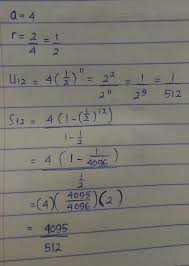 a = 4
r = 2/4 = 1/2
U12 = 4(1/2)^11 = 2^2/2^11 = 1/2^9 = 1/512
S12 = 4(1-(1/2)^12)/(1-1/2)
= 4(1-1/4096)/(1/2)
= (4)(4095/4096)(2)
= 4095/512